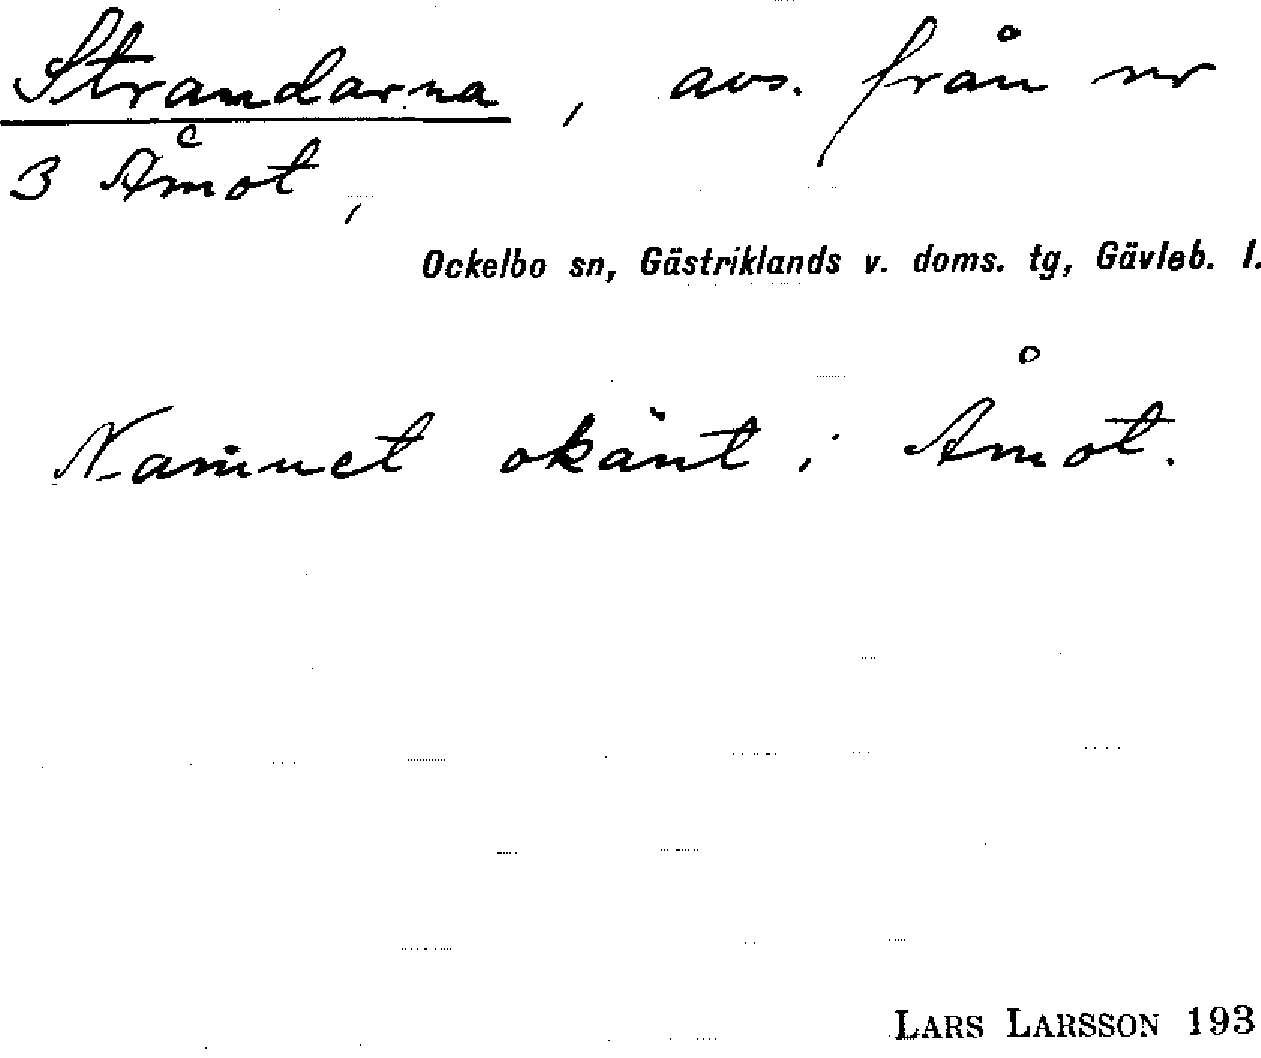 Strandarna, avs. från nr
3 Åmot,
Ockelbo sn, Gästriklands v. doms. tg, Gävleb. l.
Namnet okänt i Åmot.
LARS LARSSON 193